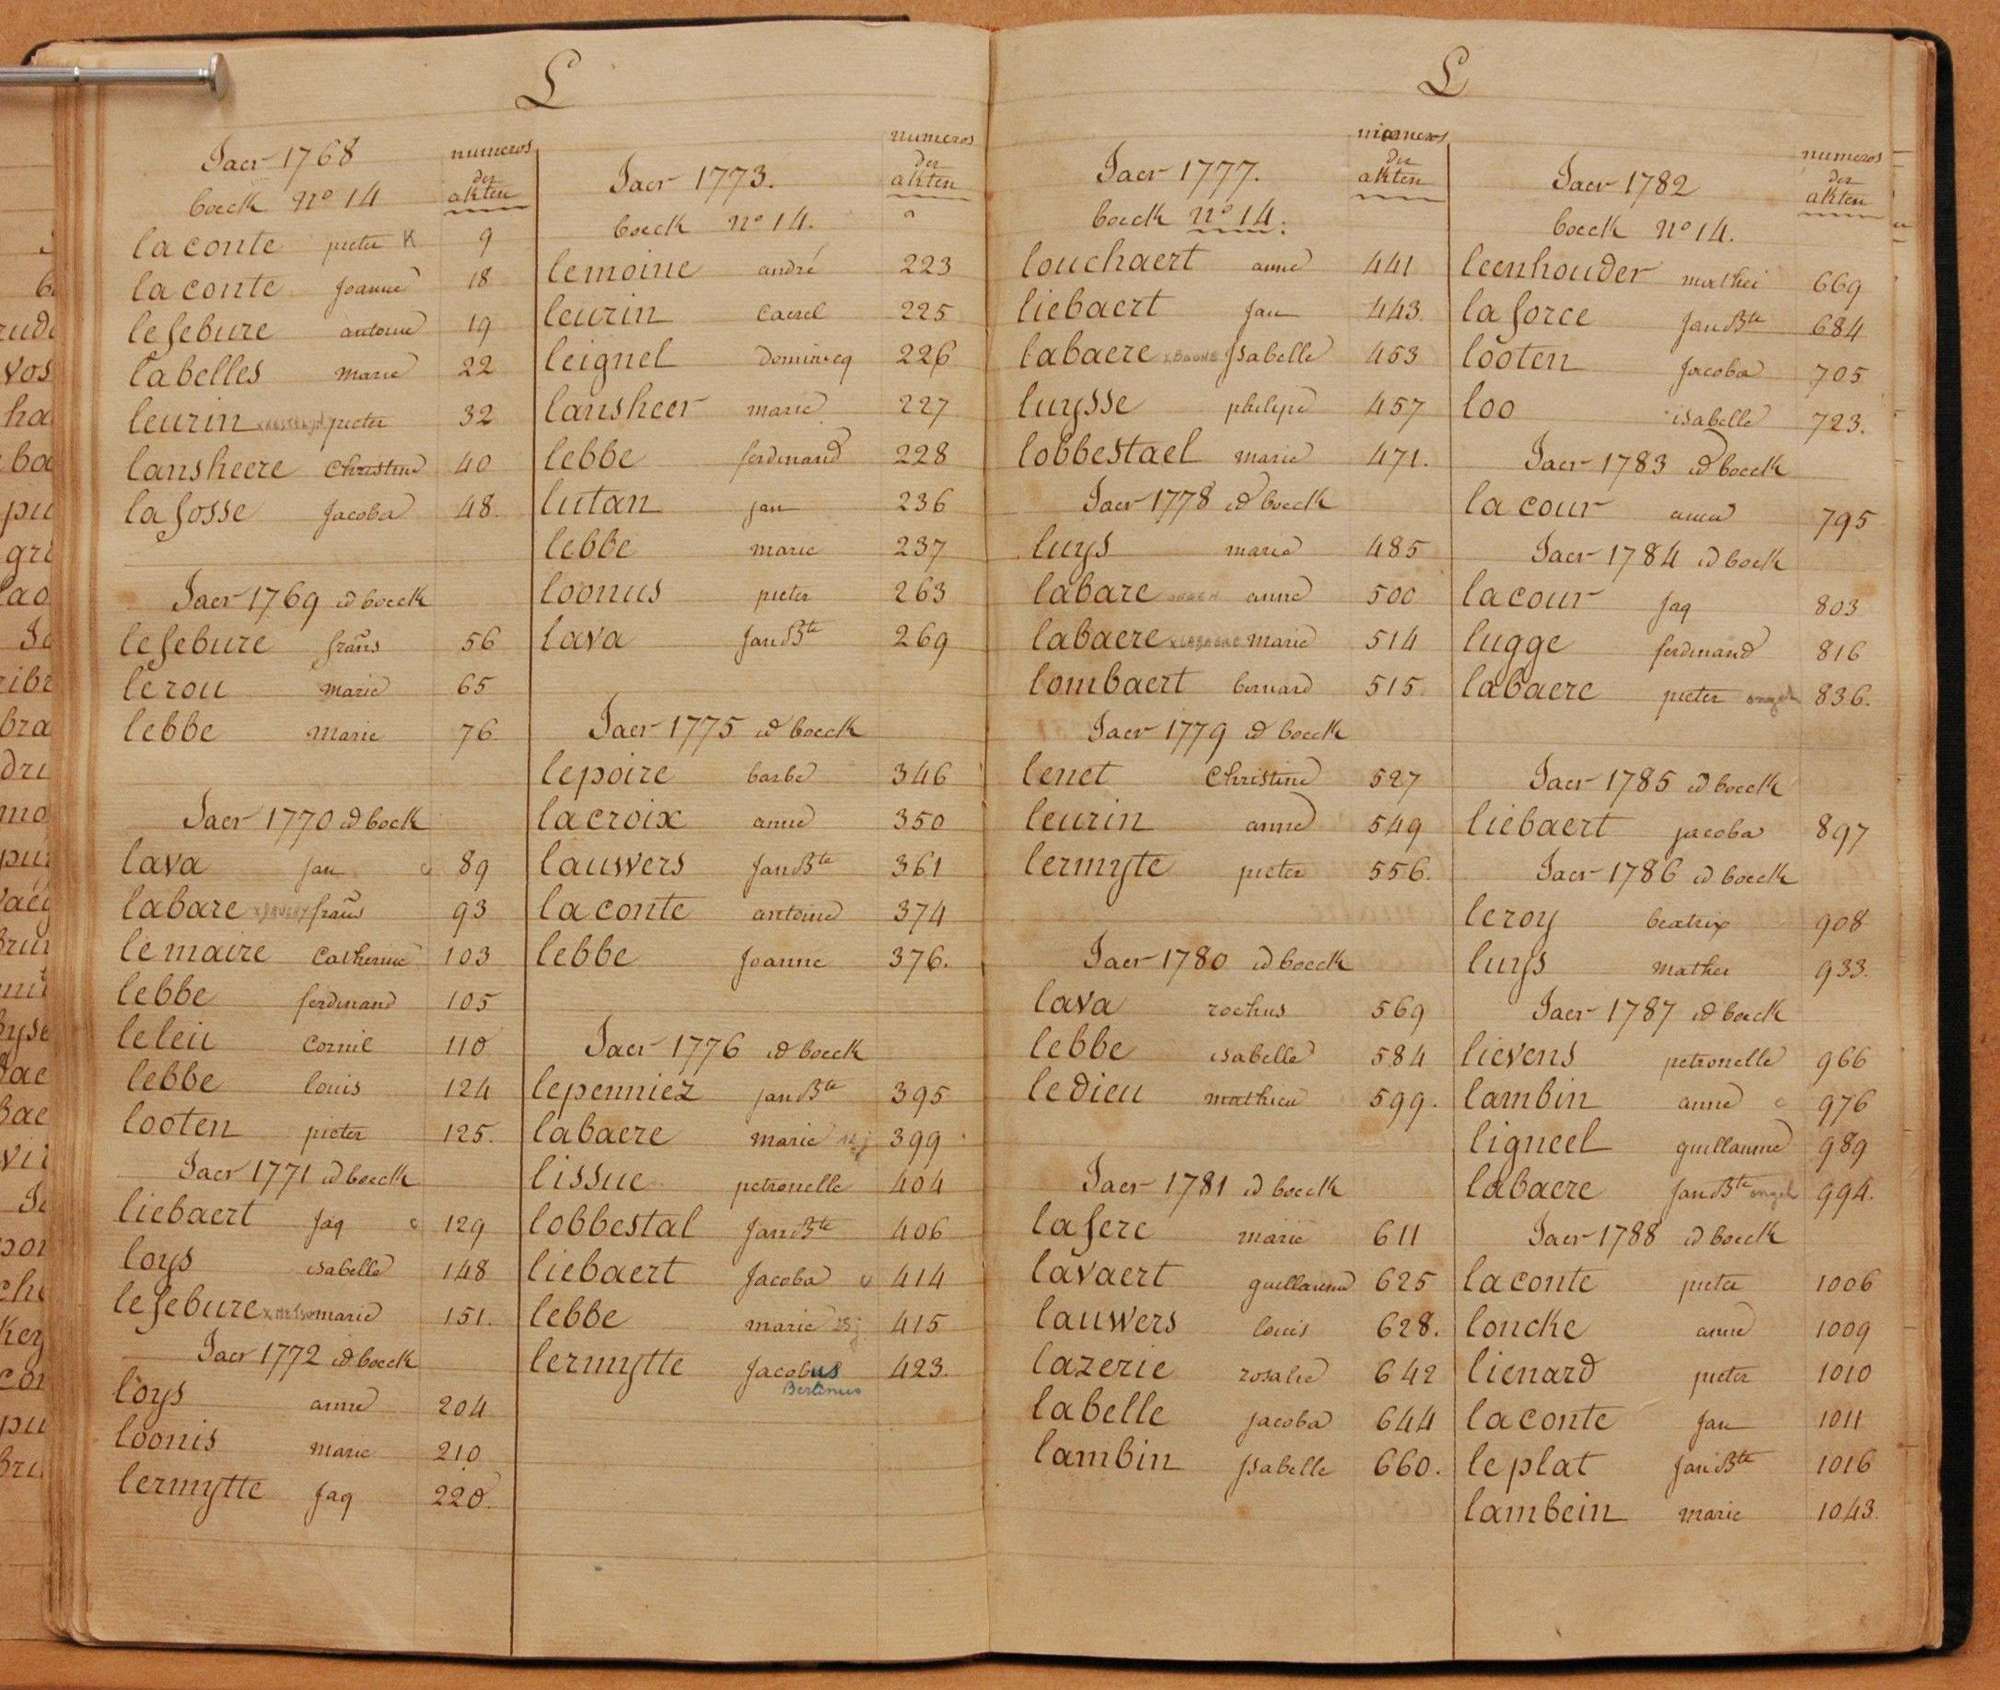 L
Jaer 1768
numeros
der
akten
boeck nº 14
la conte pieter K 9
la conte Joanne 18
lefebure antoine 19
labelles marie 22
leurin pieter 32
lansheere Christine 40
lafosse Jacoba 48
Jaer 1769 id boeck
lefebure frans 56
lerou marie 65
lebbe Marie 76
Jaer 1770 id boek
lava jan 89
labare frans 93
le maire Catherine 103
lebbe ferdinand 105
leleu Cornil 110
lebbe louis 124
looten pieter 125.
Jaer 1771 id boeck
liebaert Jaq c 129
loys isabelle 148
lefebure marie 151.
Jaer 1772 id boeck
loys anne 204
loonis marie 210
lermytte Jaq 220.
Jaer 1773.
numeros
der
akten
boeck nº 14.
lemoine andré 223
leurin Caerel 225
leignel Dominicq 226
lansheer marie 227
lebbe ferdinand 228
lutan jan 236
lebbe marie 237
loonus pieter 263
lava Jan Bte 269
Jaer 1775 id boeck
lepoire barbe 346
lacroix anne 350
lauwers Jan Bte 361
laconte antoine 374
lebbe Joanne 376.
Jaer 1776 id boeck
lepenniez jan Bte 395
labaere marie 399
lissue petronelle 404
lobbestal Jan Bte 406
liebaert Jacoba 414
lebbe marie 415
lermytte Jacobus 423.
Bertinus
L
Jaer 1777.
numeros
der
akten
boeck nº 14.
louchaert anne 441
liebaert Jan 443
labaere Isabelle 453
luysse philipe 457
lobbestael marie 471.
Jaer 1778 id boeck
luys marie 485
labare anne 500
labaere marie 514
lombaert bernard 515
Jaer 1779 id boeck
lenet Christine 527
leurin anne 549
lermyte pieter 556.
Jaer 1780 id boeck
lava rochus 569
lebbe isabelle 584
ledieu mathieu 599.
Jaer 1781 id boeck
lafere marie 611
lavaert guillaume 625
lauwers louis 628.
lazerie rosalie 642
labelle jacoba 644
lambin Isabelle 660.
Jaer 1782
numeros
der
akten
boeck nº 14.
leenhouder mathei 669
laforce Jan Bte 684
looten Jacoba 705
loo isabelle 723.
Jaer 1783 id boeck
lacour anna 795
Jaer 1784 id boek
lacour Jaq 803
lugge ferdinand 816
labaere pieter 836.
Jaer 1785 id boeck
liebaert jacoba 897
Jaer 1786 id boeck
leroy beatrix 908
luys mather 933.
Jaer 1787 id boeck
lievens petronelle 966
lambin anne c 976
ligneel guillaume 989
labaere Jan Bte engel 994.
Jaer 1788 id boeck
laconte pieter 1006
loncke anne 1009
lienard pieter 1010
laconte Jan 1011
leplat Jan Bte 1016
lambein marie 1043.